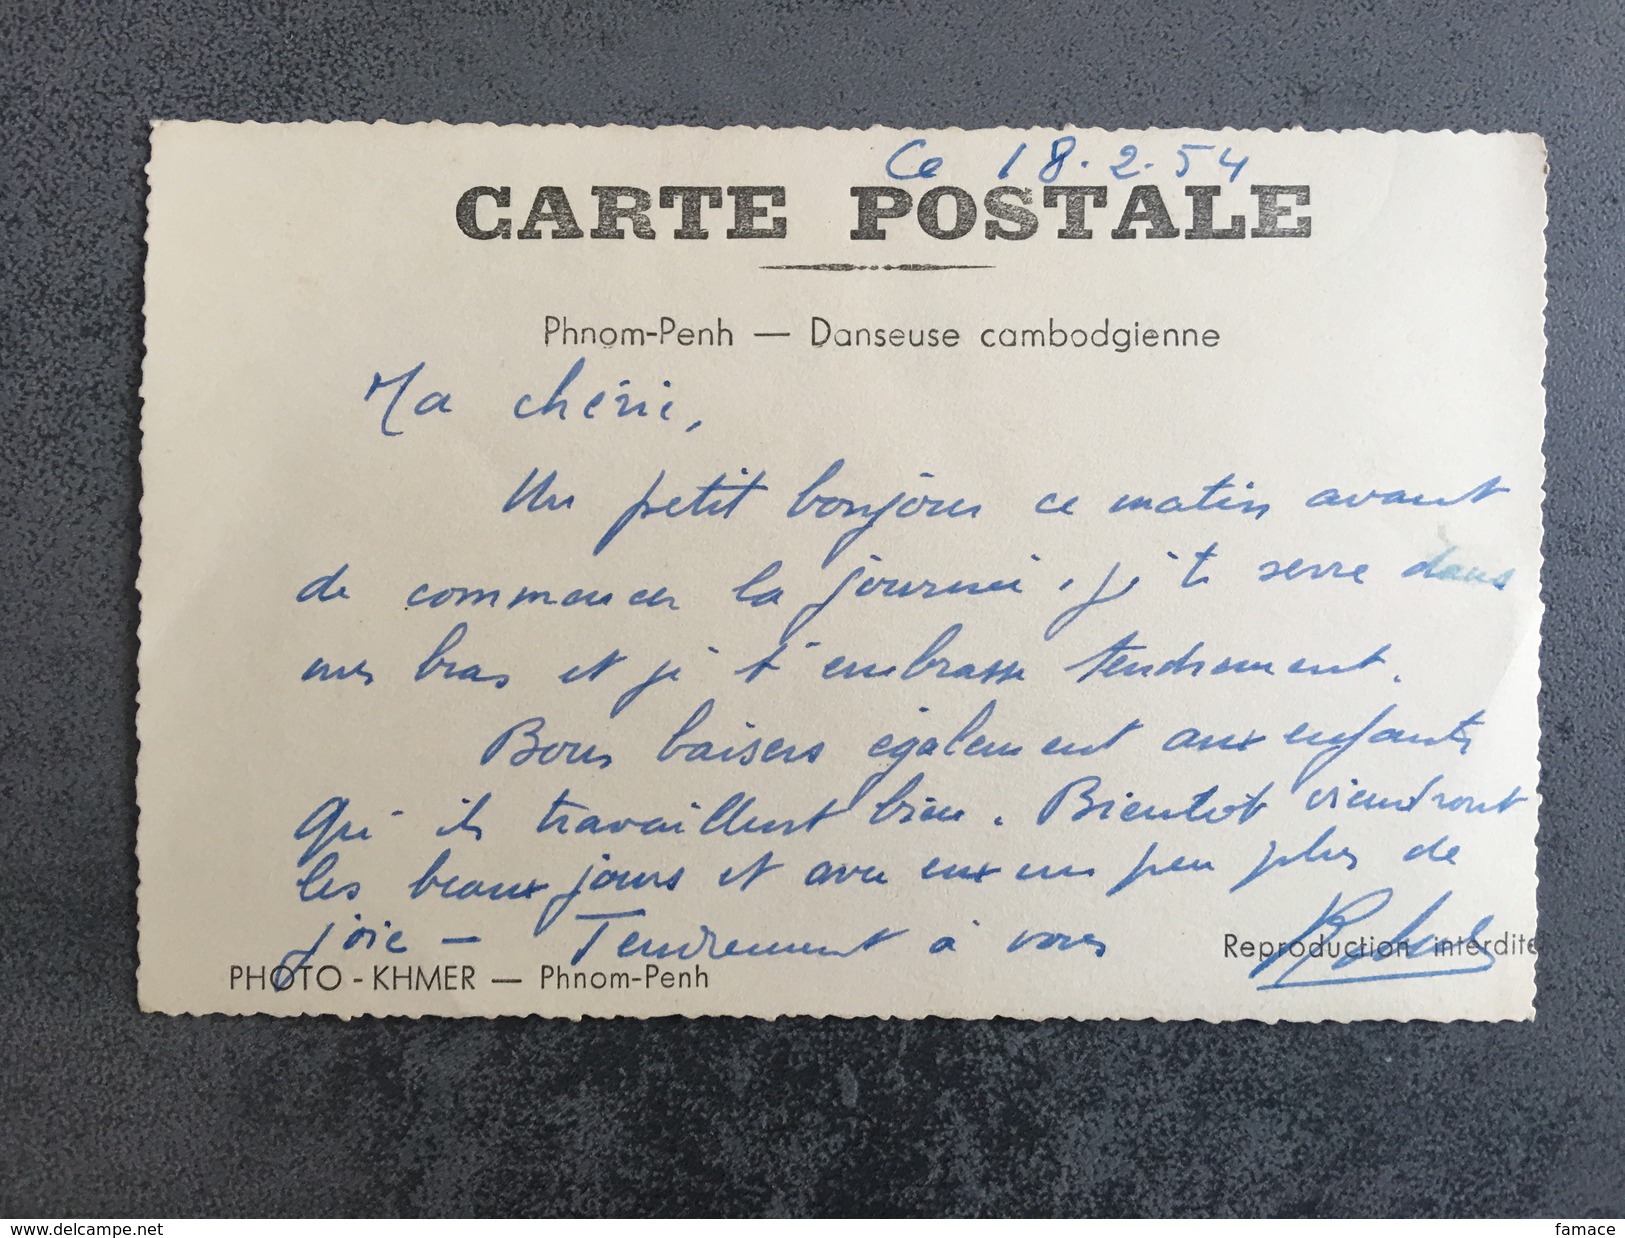 Ce 18.2.54
CARTE POSTALE
Phnom-Penh — Danseuse cambodgienne
Ma chérie,
Un petit bonjour ce matin avant
de commencer la journée, je te serre dans
mes bras et je t'embrasse tendrement.
Bons baisers également aux enfants
Qu'ils travaillent bien. Bientôt viendront
les beaux jours et avec eux un peu plus de
joie — Tendrement à vous
Reproduction interdite
PHOTO - KHMER — Phnom-Penh
www.delcampe.net
famace